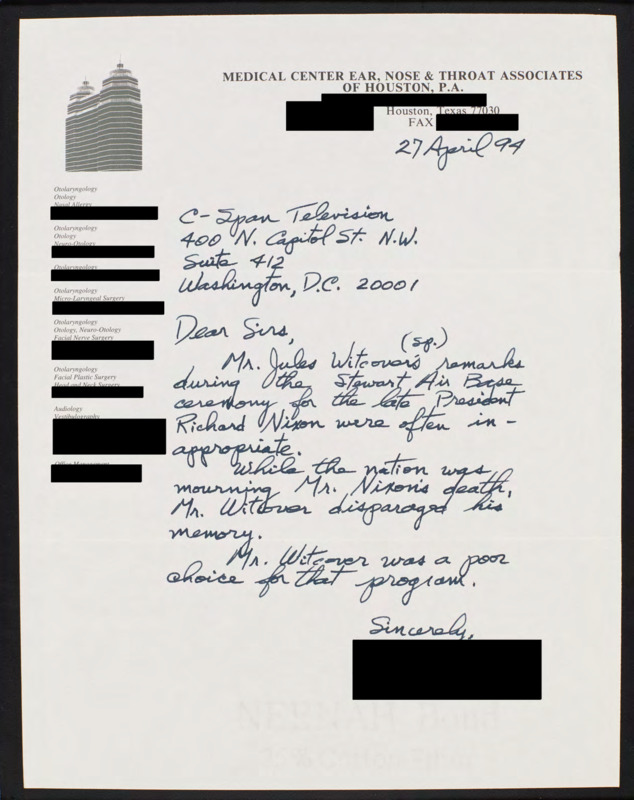 MEDICAL CENTER EAR, NOSE & THROAT ASSOCIATES
OF HOUSTON, P.A.
Houston, Texas 77030
FAX
27 April 94
Otolaryngology
Otology
Nasal Allergy
Otolaryngology
Otology
Neuro-Otology
Otolaryngology
Otolaryngology
Micro-Laryngeal Surgery
Otolaryngology
Otology, Neuro-Otology
Facial Nerve Surgery
Otolaryngology
Facial Plastic Surgery
Head and Neck Surgery
Audiology
Vestibulography
Office Management
C-Span Television
400 N. Capitol St. N.W.
Suite 412
Washington, D.C. 20001
Dear Sirs,
(sp.)
Mr. Jules Witcover's remarks
during the Stewart Air Base
ceremony for the late President
Richard Nixon were often in-
appropriate.
While the nation was
mourning Mr. Nixon's death,
Mr. Witcover disparaged his
memory.
Mr. Witcover was a poor
choice for that program.
Sincerely,
NEENAH Bond
25% Cotton Fiber